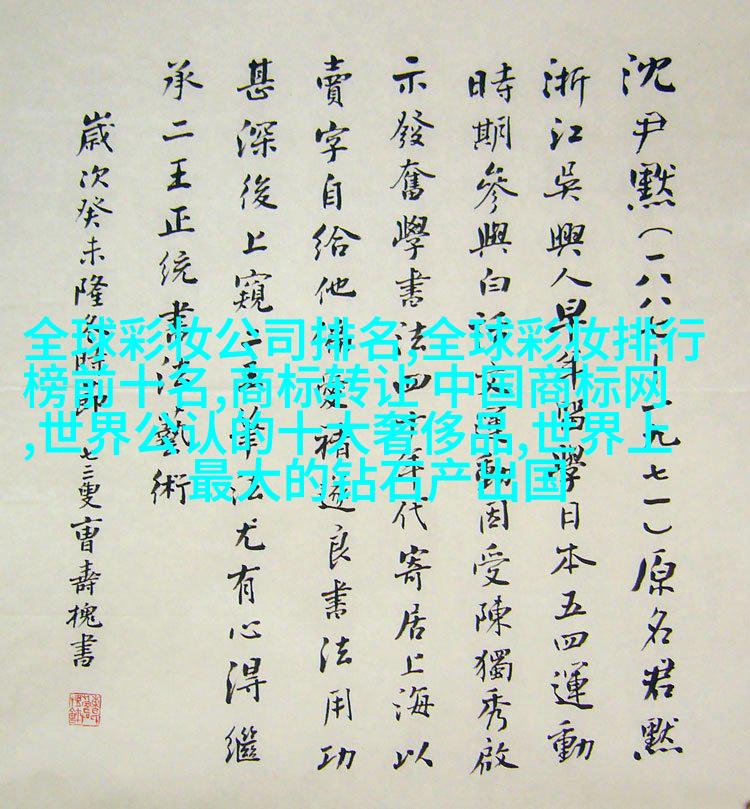 沈尹默(一八八七—一九七一)原名君默
浙江吳興人早年留學日本五四運動
時期參與白話文運動因受陳獨秀啟
示發奮學書法四十年代寄居上海以
賣字自給他偏愛褚遂良書法用功
甚深後上窺二王筆法尤有心得繼
承二王正統書法藝術
歲次癸未隆冬時節七三叟曹壽槐書
全球彩妆公司排名,全球彩妆排行
榜前十名,商标转让 中国商标网
,世界公认的十大奢侈品,世界上
最大的钻石产出国